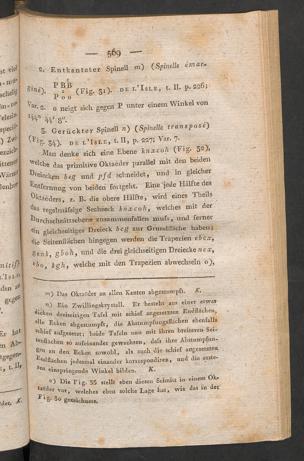 — 569 —
2. Entkanteter Spinell m) (Spinelle émar-
P B B
giné). (Fig. 31). DE L'ISLE, t. II. p. 226;
P o o
Var. 2. o neigt sich gegen P unter einem Winkel von
144° 44' 8".
3. Gerückter Spinell n) (Spinelle transposé)
(Fig. 34). DE L'ISLE, t. II, p. 227; Var. 7.
Man denke sich eine Ebene knxcoh (Fig. 32),
welche das primitive Oktaëder parallel mit den beiden
Dreiecken beg und pfd schneidet, und in gleicher
Entfernung von beiden fortgeht. Eine jede Hälfte des
Oktaëders, z. B. die obere Hälfte, wird eines Theils
das regelmäſsige Sechseck knxcoh, welches mit der
Durchschnittsebene zusammenfallen muſs, und ferner
ein gleichseitiges Dreieck beg zur Grundfläche haben;
die Seitenflächen hingegen werden die Trapezien
gboh, und die drei gleichseitigen Dreiecke
bgh, welche mit den Trapezien abwechseln o),
m) Das Oktaëder an allen Kanten abgestumpft. K.
n) Ein Zwillingskrystall. Er besteht aus einer etwas
dicken dreiseitigen Tafel mit schief angesetzten Endflächen,
alle Ecken abgestumpft, die Abstumpfungsflächen ebenfalls
schief aufgesetzt; beide Tafeln und mit ihren breiteren Sei-
tenflächen so aufeinander gewachsen, daſs ihre Abstumpfun-
gen an den Ecken sowohl, als auch die schief angesetzten
Endflächen jedesmal einander korrespondiren, und die erste-
ren einspringende Winkel bilden. K.
o) Die Fig. 33 stellt eben diesen Schnitt in einem Ok-
taëder vor, welches eben solche Lage hat, wie das in der
Fig. 30 gezeichnete.